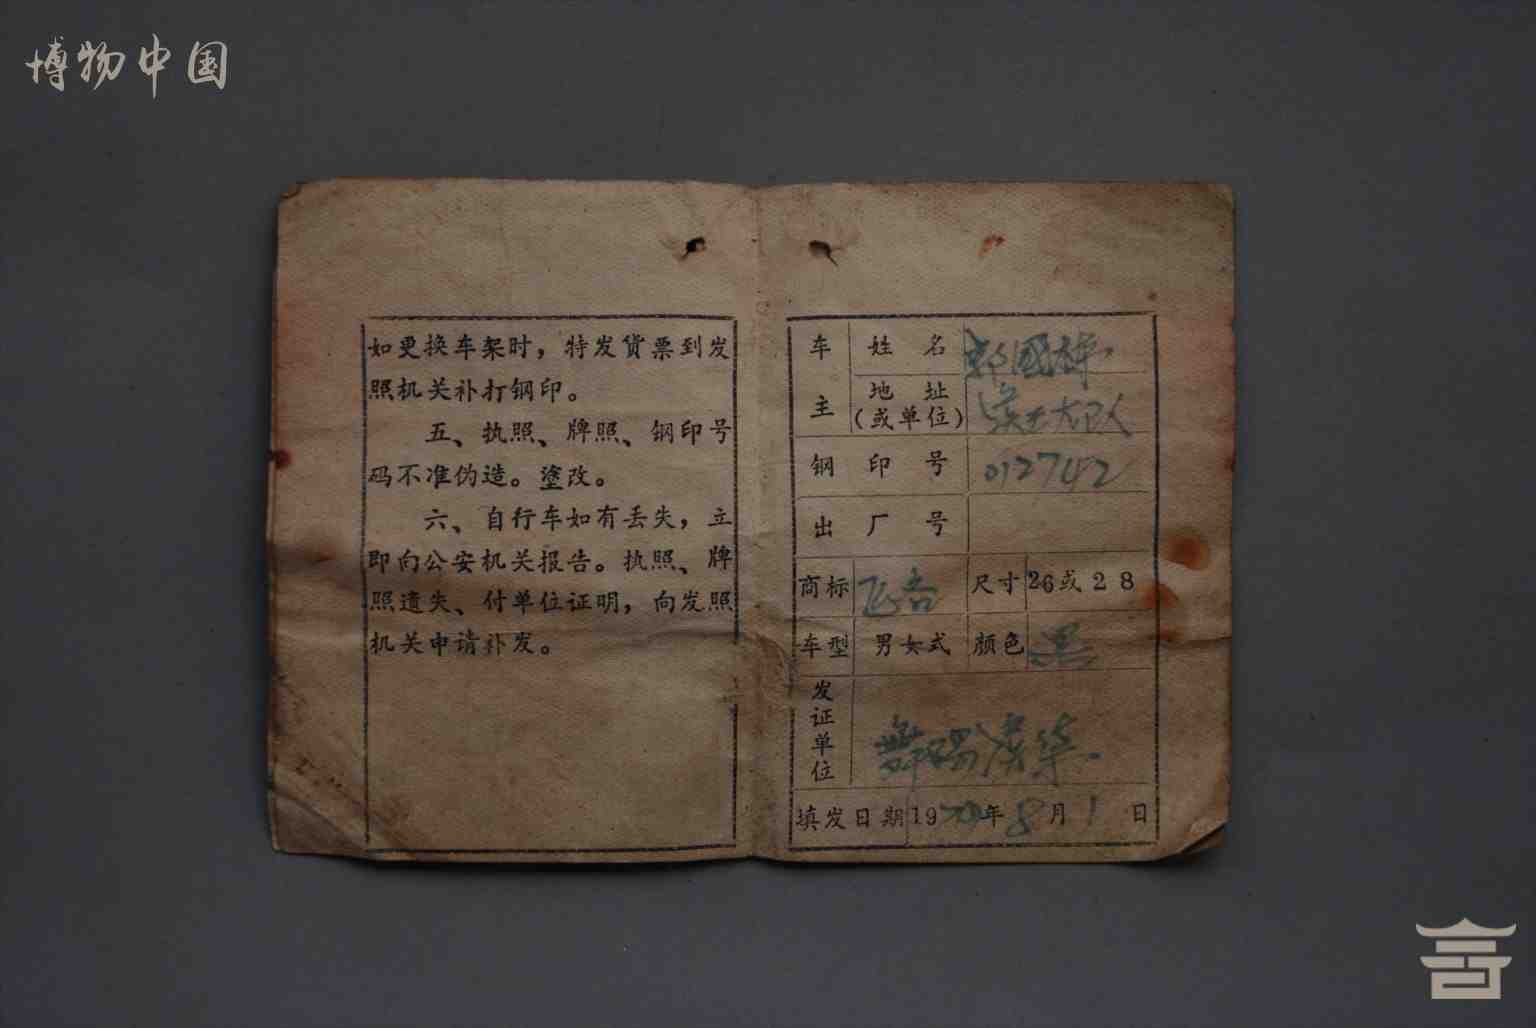 博物中国
如更换车架时，特发货票到发
照机关补打钢印。
五、执照、牌照、钢印号
码不准伪造。塗改。
六、自行车如有丢失，立
即向公安机关报告。执照、牌
照遗失、付单位证明，向发照
机关申请补发。
车主 姓名 郭國
地址(或单位) 大队
钢印号 012742
出厂号
商标 飞合 尺寸 26或28
车型 男女式 颜色 黑
发证单位 舞阳
填发日期 19 年8月1日